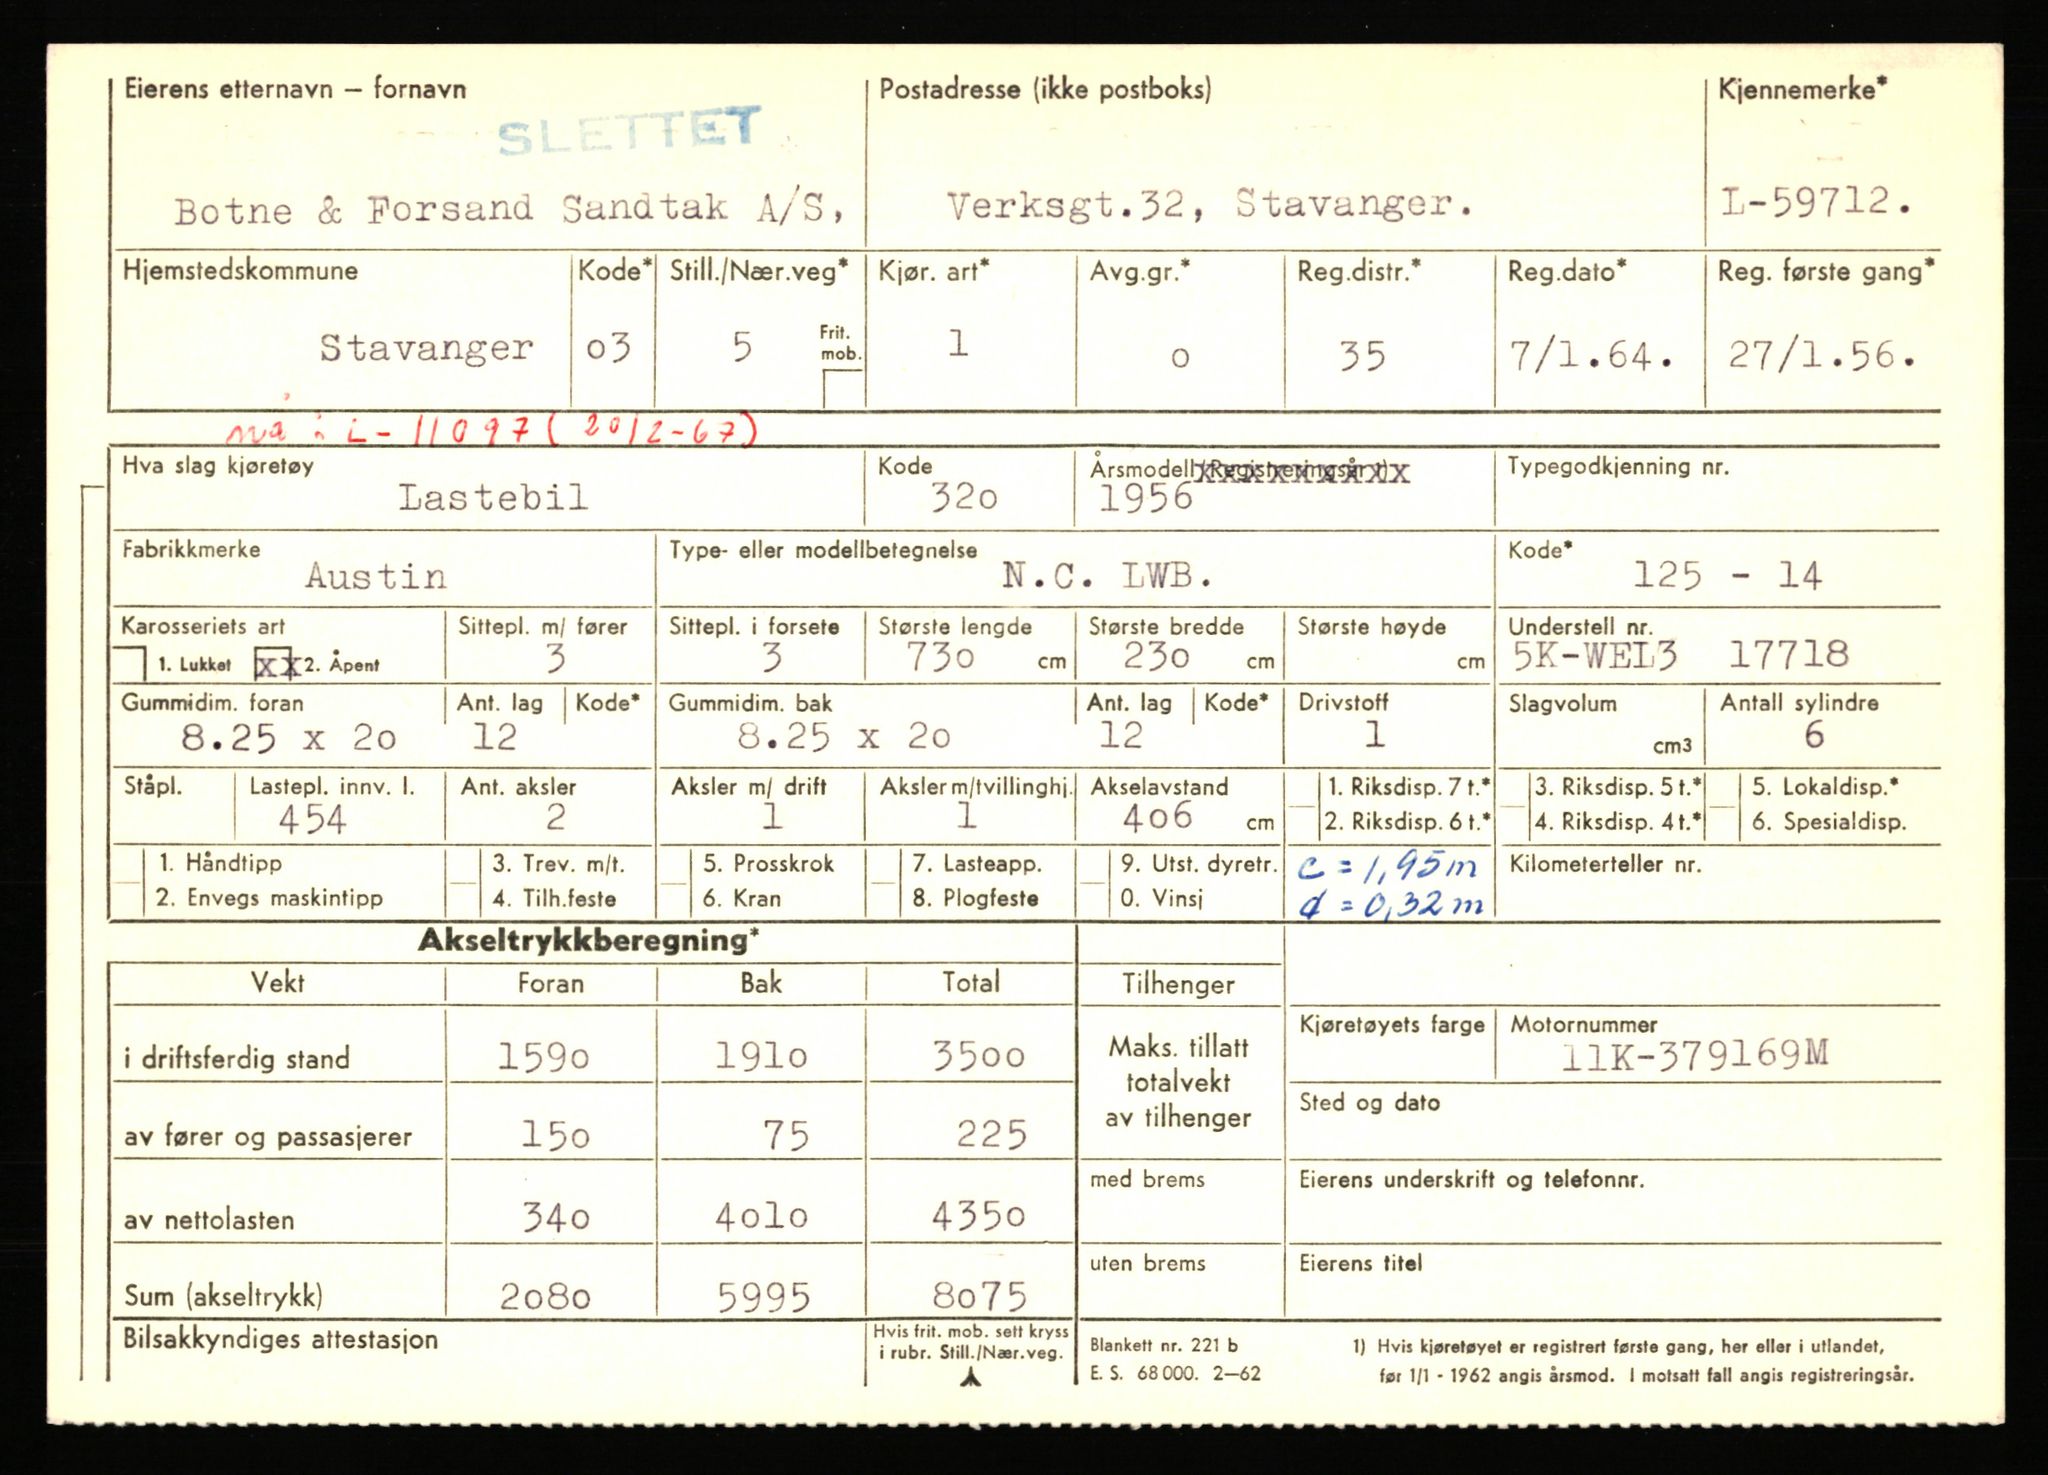 Eierens etternavn – fornavn Postadresse (ikke postboks) Kjennemerke*
SLETTET
Botne & Forsand Sandtak A/S, Verksgt.32, Stavanger. L-59712.
Hjemstedskommune Kode* Still./Nær.veg* Kjør. art* Avg.gr.* Reg.distr.* Reg.dato* Reg. første gang*
Stavanger o3 5 Frit. mob. 1 o 35 7/1.64. 27/1.56.
nå: L-11097 (20/2-67)
Hva slag kjøretøy Kode Årsmodell (Registreringsår ¹) Typegodkjenning nr.
Lastebil 32o 1956
Fabrikkmerke Type- eller modellbetegnelse Kode*
Austin N.C. LWB. 125 - 14
Karosseriets art Sittepl. m/ fører Sittepl. i forsete Største lengde Største bredde Største høyde Understell nr.
1. Lukket xx 2. Åpent 3 3 73o cm 23o cm cm 5K-WEL3 17718
Gummidim. foran Ant. lag Kode* Gummidim. bak Ant. lag Kode* Drivstoff Slagvolum Antall sylindre
8.25 x 2o 12 8.25 x 2o 12 1 cm3 6
Ståpl. Lastepl. innv. l. Ant. aksler Aksler m/ drift Aksler m/tvillinghj. Akselavstand 1. Riksdisp. 7 t.* 3. Riksdisp. 5 t.* 5. Lokaldisp.*
454 2 1 1 4o6 cm 2. Riksdisp. 6 t.* 4. Riksdisp. 4 t.* 6. Spesialdisp.
1. Håndtipp 3. Trev. m/t. 5. Prosskrok 7. Lasteapp. 9. Utst. dyretr. c = 1,95 m Kilometerteller nr.
2. Envegs maskintipp 4. Tilh.feste 6. Kran 8. Plogfeste 0. Vinsj d = 0,32 m
Akseltrykkberegning*
Vekt Foran Bak Total Tilhenger
Kjøretøyets farge Motornummer
i driftsferdig stand 159o 191o 35oo Maks. tillatt 11K-379169M
totalvekt
Sted og dato
av tilhenger
av fører og passasjerer 15o 75 225
med brems Eierens underskrift og telefonnr.
av nettolasten 34o 4o1o 435o
uten brems Eierens titel
Sum (akseltrykk) 2o8o 5995 8o75
Bilsakkyndiges attestasjon Hvis frit. mob. sett kryss Blankett nr. 221 b 1) Hvis kjøretøyet er registrert første gang, her eller i utlandet,
i rubr. Still./Nær.veg. E. S. 68 000. 2–62 før 1/1 - 1962 angis årsmod. I motsatt fall angis registreringsår.